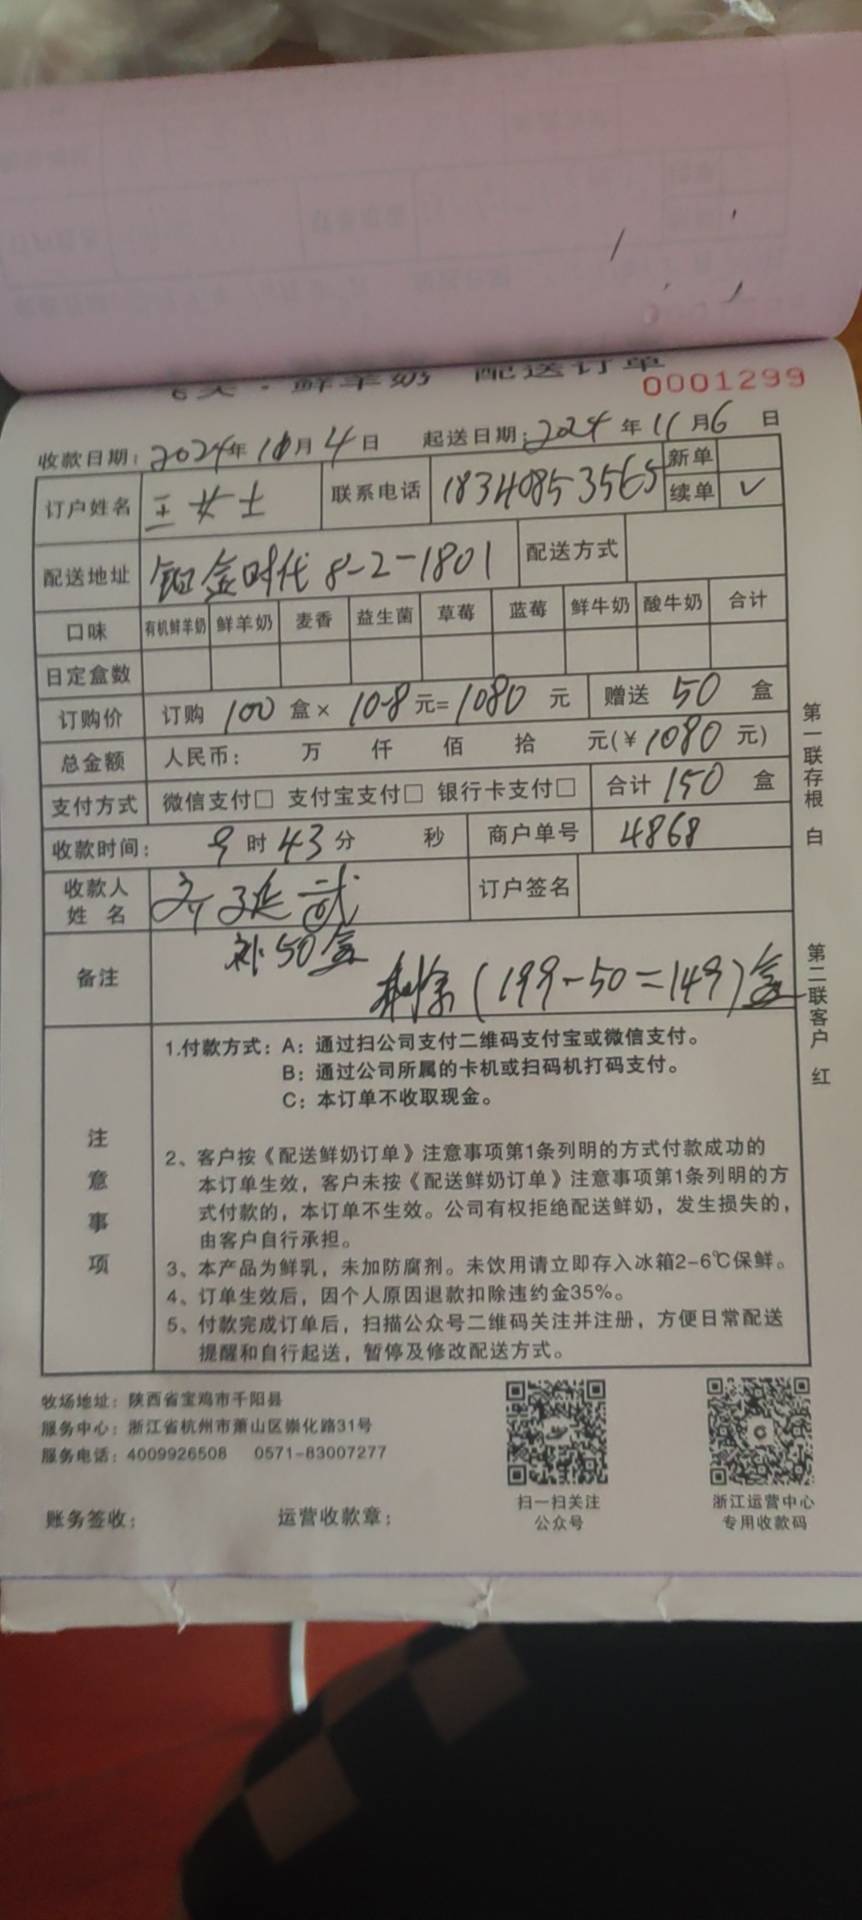 ·鲜羊奶 配送订单
0001299
收款日期: 2024年11月4日 起送日期: 2024年11月6日
订户姓名 王女士 联系电话 18340853565 新单
续单 ✓
配送地址 铂金时代 8-2-1801 配送方式
口味 有机鲜羊奶 鲜羊奶 麦香 益生菌 草莓 蓝莓 鲜牛奶 酸牛奶 合计
日定盒数
订购价 订购 100 盒× 10.8 元= 1080 元 赠送 50 盒
总金额 人民币: 万 仟 佰 拾 元(¥1080元)
支付方式 微信支付□ 支付宝支付□ 银行卡支付□ 合计 150 盒
收款时间: 9时43分 秒 商户单号 4868
收款人
姓 名 订户签名
备注 补50盒
剩余(199-50=149)盒
注意事项
1.付款方式: A: 通过扫公司支付二维码支付宝或微信支付。
B: 通过公司所属的卡机或扫码机打码支付。
C: 本订单不收取现金。
2、客户按《配送鲜奶订单》注意事项第1条列明的方式付款成功的
本订单生效，客户未按《配送鲜奶订单》注意事项第1条列明的方
式付款的，本订单不生效。公司有权拒绝配送鲜奶，发生损失的，
由客户自行承担。
3、本产品为鲜乳，未加防腐剂。未饮用请立即存入冰箱2-6℃保鲜。
4、订单生效后，因个人原因退款扣除违约金35%。
5、付款完成订单后，扫描公众号二维码关注并注册，方便日常配送
提醒和自行起送，暂停及修改配送方式。
第一联存根 白
第二联客户 红
牧场地址: 陕西省宝鸡市千阳县
服务中心: 浙江省杭州市萧山区崇化路31号
服务电话: 4009926508 0571-83007277
扫一扫关注
公众号
浙江运营中心
专用收款码
账务签收: 运营收款章: